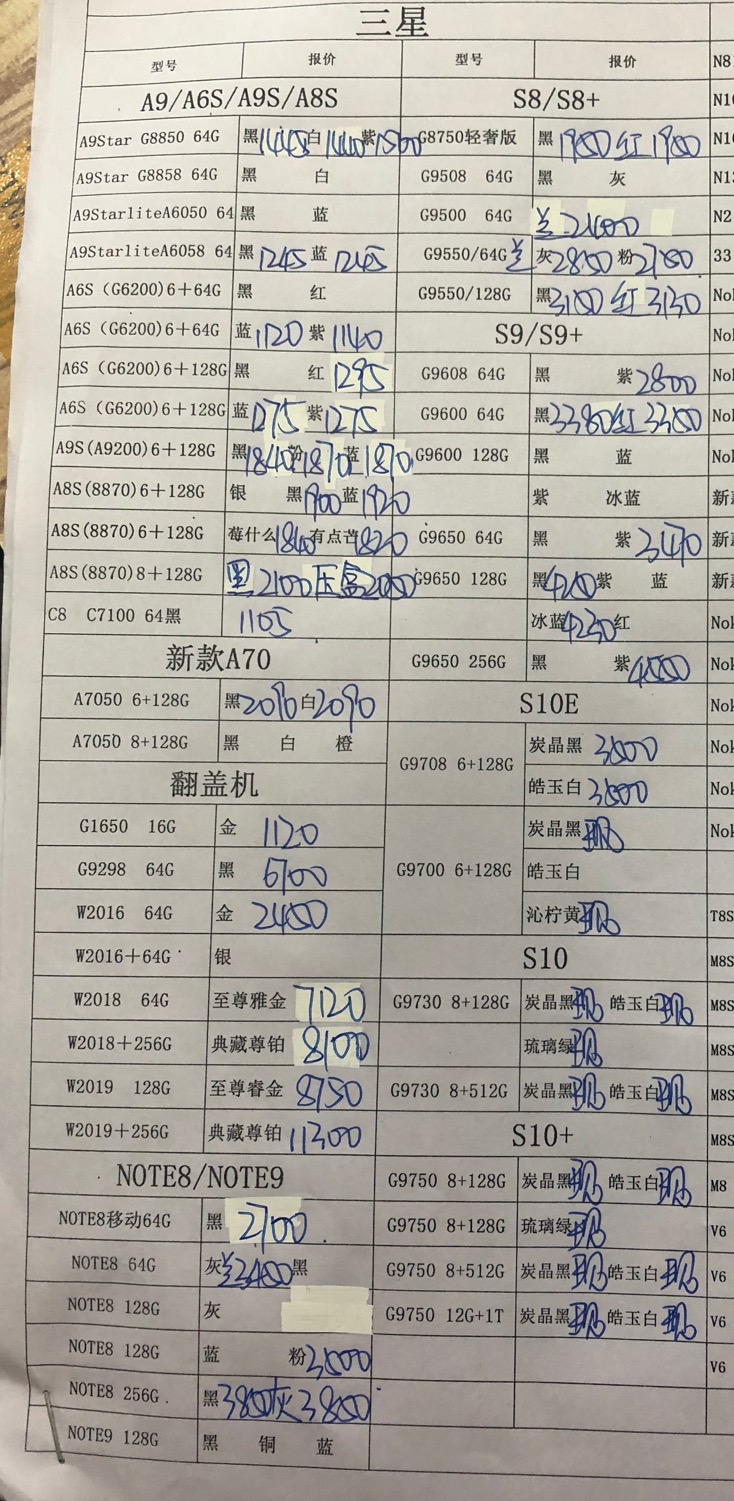 三星
型号 报价 型号 报价 N8
A9/A6S/A9S/A8S S8/S8+ N1
A9Star G8850 64G 黑1445白1440紫1560 G8750轻奢版 黑1950红1950 N1
A9Star G8858 64G 黑 白 G9508 64G 黑 灰 N1
A9StarliteA6050 64 黑 蓝 G9500 64G 兰2600 N2
A9StarliteA6058 64 黑1245蓝1245 G9550/64G 兰 灰2850粉2750 33
A6S (G6200)6+64G 黑 红 G9550/128G 黑3150红3130 Nol
A6S (G6200)6+64G 蓝1120紫1140 S9/S9+ Nol
A6S (G6200)6+128G 黑 红1295 G9608 64G 黑 紫2800 Nol
A6S (G6200)6+128G 蓝1275紫1275 G9600 64G 黑3380红3350 Nol
A9S(A9200)6+128G 黑1840粉1870蓝1870 G9600 128G 黑 蓝 Nol
A8S(8870)6+128G 银 黑1900蓝1920 紫 冰蓝 新款
A8S(8870)6+128G 莓什么1840有点芒1820 G9650 64G 黑 紫3470 新款
A8S(8870)8+128G 黑2100压盒2050 G9650 128G 黑4210紫 蓝 新款
C8 C7100 64黑 1105 冰蓝4230红 Nol
新款A70 G9650 256G 黑 紫4550 Nol
A7050 6+128G 黑2090白2090 S10E Nol
A7050 8+128G 黑 白 橙 G9708 6+128G 炭晶黑 3800 Nol
翻盖机 皓玉白 3800 Nol
G1650 16G 金 1120 炭晶黑现 Nol
G9298 64G 黑 6700 G9700 6+128G 皓玉白
W2016 64G 金 2450 沁柠黄现 T8S
W2016+64G 银 S10 M8S
W2018 64G 至尊雅金 7120 G9730 8+128G 炭晶黑现 皓玉白现 M8S
W2018+256G 典藏尊铂 8100 琉璃绿现 M8S
W2019 128G 至尊睿金 8750 G9730 8+512G 炭晶黑现 皓玉白现 M8S
W2019+256G 典藏尊铂 11300 S10+ M8S
NOTE8/NOTE9 G9750 8+128G 炭晶黑现 皓玉白现 M8
NOTE8移动64G 黑 2700 G9750 8+128G 琉璃绿现 V6
NOTE8 64G 灰兰3450黑 G9750 8+512G 炭晶黑现 皓玉白现 V6
NOTE8 128G 灰 G9750 12G+1T 炭晶黑现 皓玉白现 V6
NOTE8 128G 蓝 粉3500 V6
NOTE8 256G 黑3850灰3850
NOTE9 128G 黑 铜 蓝